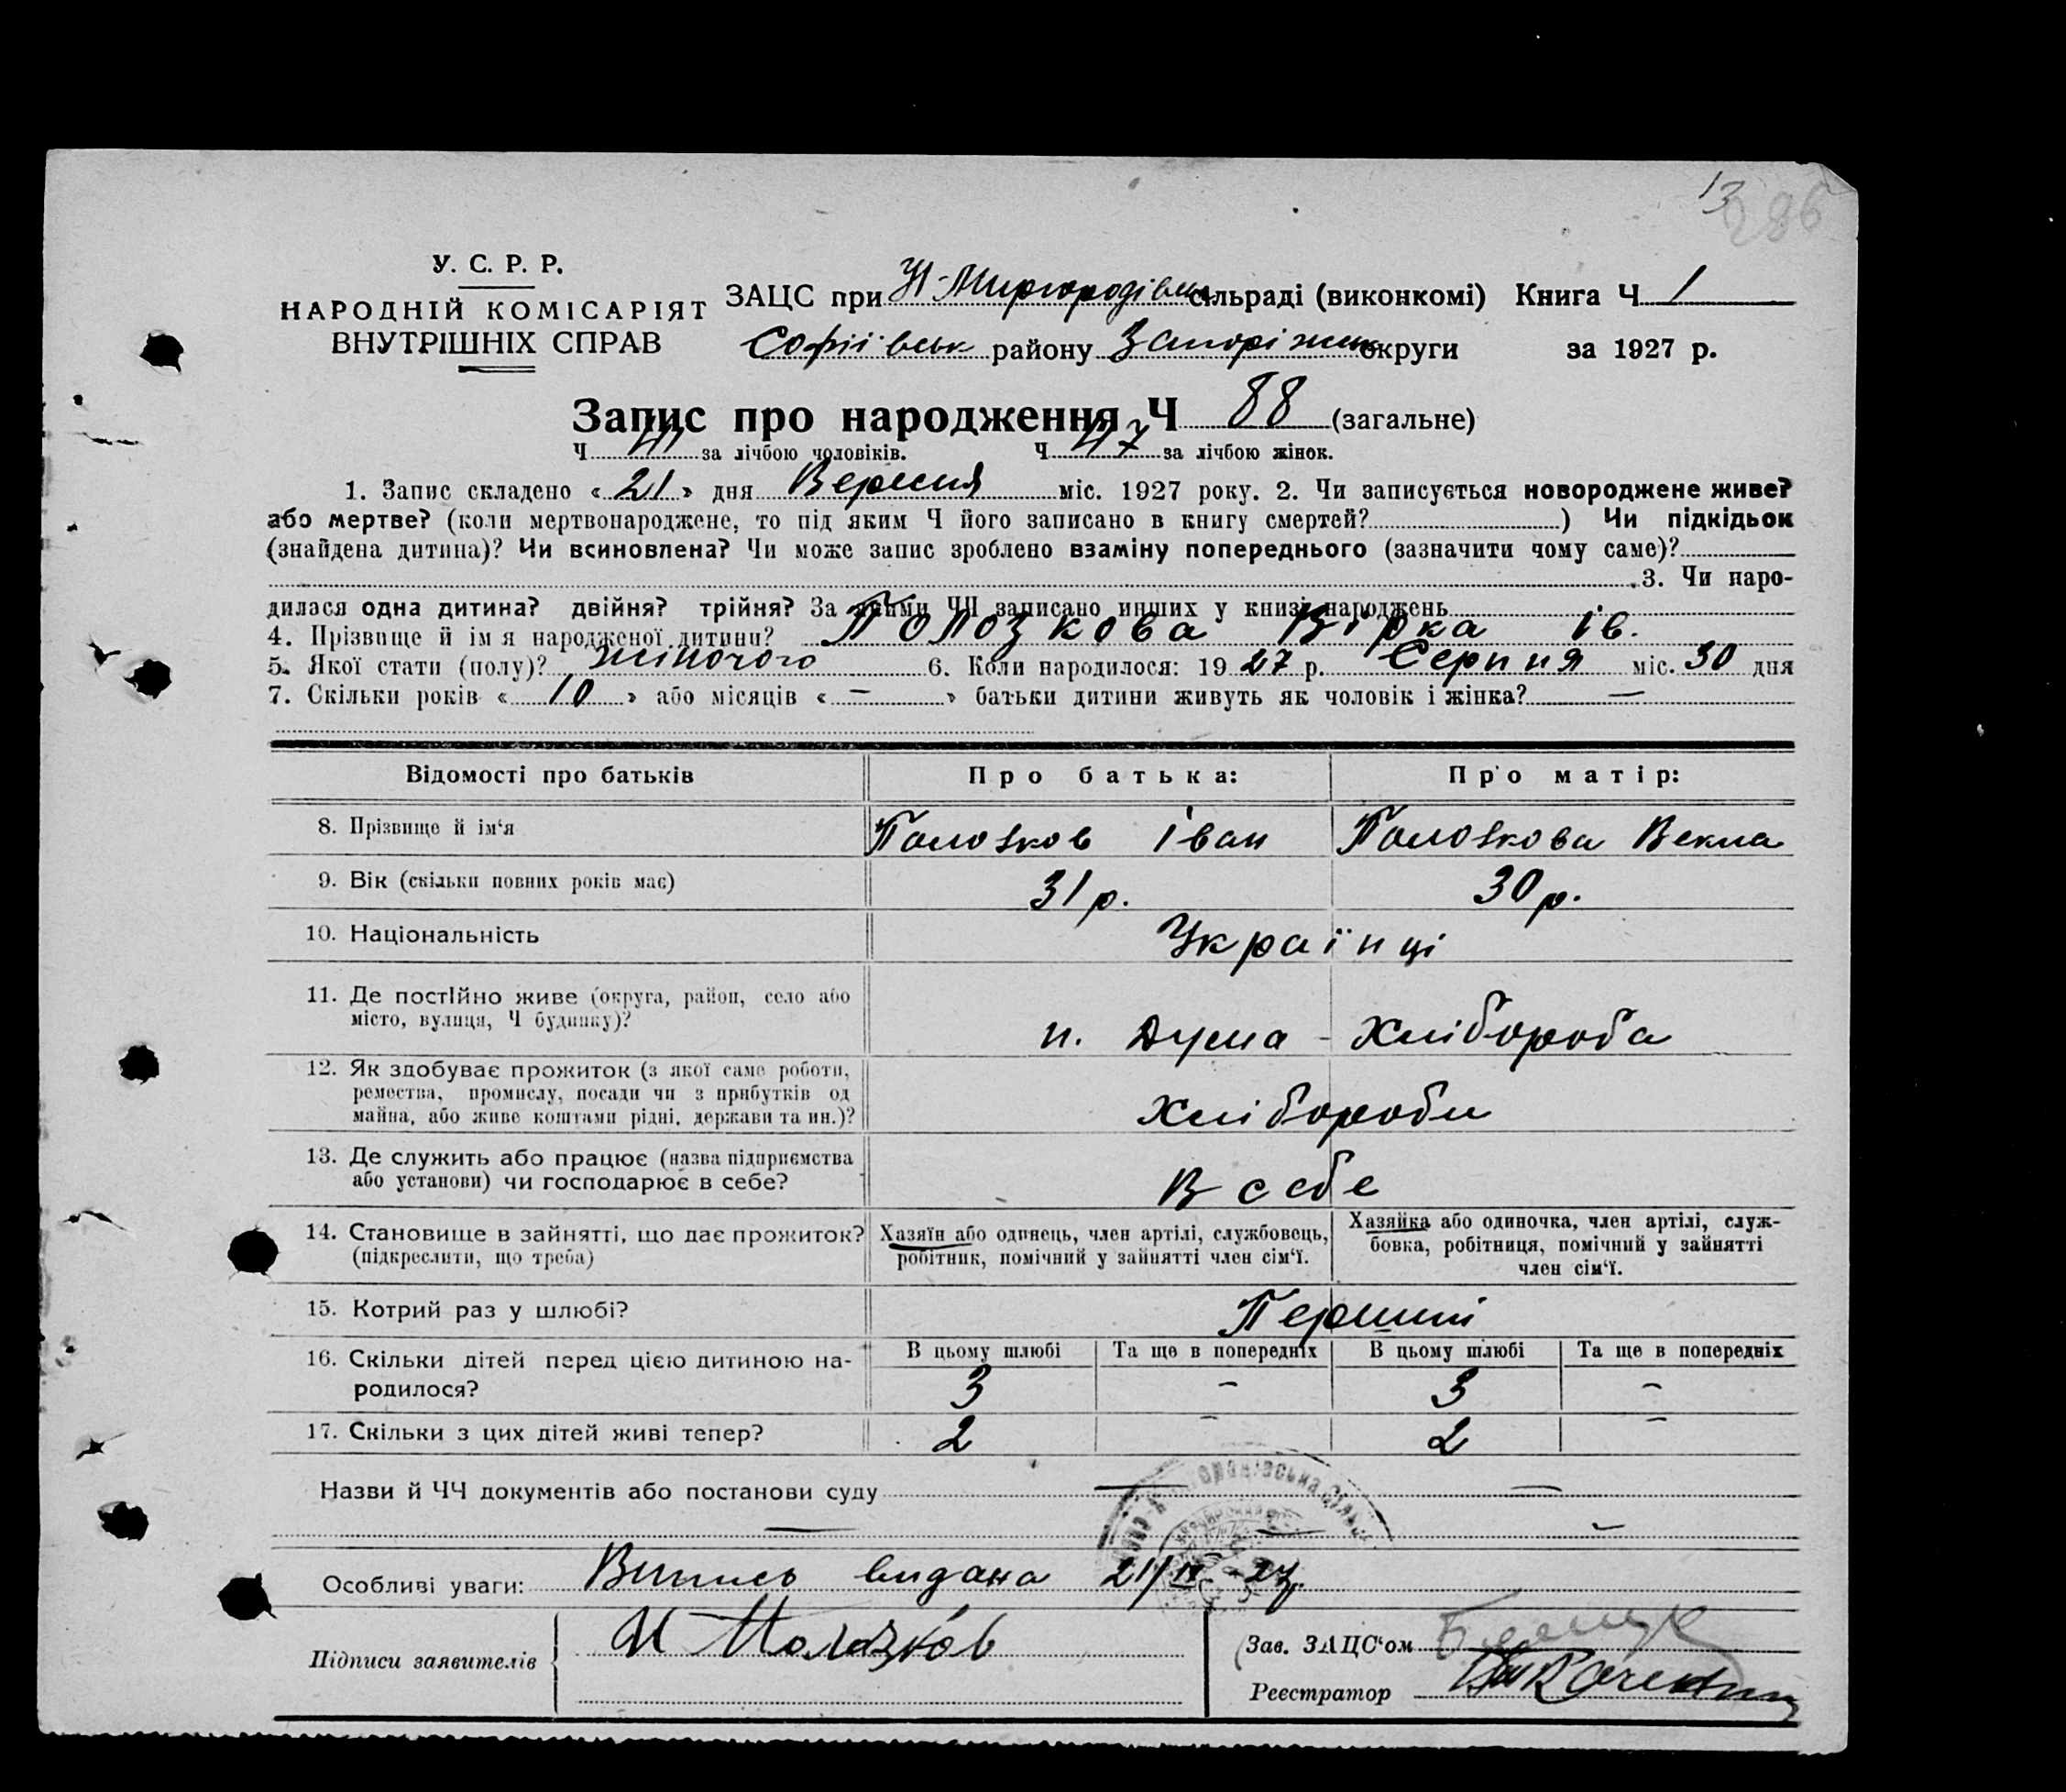 13
286
У. С. Р. Р.
НАРОДНІЙ КОМІСАРІЯТ
ВНУТРІШНІХ СПРАВ
ЗАЦС при Н-Миргородівськ сільраді (виконкомі) Книга Ч 1
Софіївськ району Запоріжськ округи за 1927 р.
Запис про народження Ч 88 (загальне)
Ч 41 за лічбою чоловіків. Ч 47 за лічбою жінок.
1. Запис складено « 21 » дня Вересня міс. 1927 року. 2. Чи записується новороджене живе?
або мертве? (коли мертвонароджене, то під яким Ч його записано в книгу смертей? ) Чи підкідьок
(знайдена дитина)? Чи всиновлена? Чи може запис зроблено взаміну попереднього (зазначити чому саме)?
3. Чи наро-
дилася одна дитина? двійня? трійня? За якими ЧЧ записано инших у книзі народжень
4. Прізвище й ім я народженої дитини? Полозкова Вірка Ів.
5. Якої стати (полу)? жіночого 6. Коли народилося: 19 27 р. Серпня міс. 30 дня
7. Скільки років « 10 » або місяців « — » батьки дитини живуть як чоловік і жінка? —
Відомості про батьків Про батька: Про матір:
8. Прізвище й ім‘я Полозков Іван Полозкова Векла
9. Вік (скільки повних років має) 31 р. 30 р.
10. Національність Українці
11. Де постІйно живе (округа, район, село або
місто, вулиця, Ч будинку)? п. Дума - Хлібороба
12. Як здобуває прожиток (з якої саме роботи,
ремества, промислу, посади чи з прибутків од
майна, або живе коштами рідні, держави та ин.)? Хлібороби
13. Де служить або працює (назва підприємства
або установи) чи господарює в себе? В себе
14. Становище в зайнятті, що дає прожиток?
(підкреслити, що треба)
Хазяїн або одинець, член артілі, службовець,
робітник, помічний у зайнятті член сім‘ї.
Хазяйка або одиночка, член артілі, служ-
бовка, робітниця, помічний у зайнятті
член сім‘ї.
15. Котрий раз у шлюбі? Перший
В цьому шлюбі Та ще в попередніх В цьому шлюбі Та ще в попередніх
16. Скільки дітей перед цією дитиною на-
родилося? 3 – 3 –
17. Скільки з цих дітей живі тепер? 2 – 2 –
Назви й ЧЧ документів або постанови суду — —
— — —
Особливі уваги: Випись видана 21/IX-27р.
Підписи заявителів И Полозков
Зав. ЗАЦС‘ом
Реєстратор